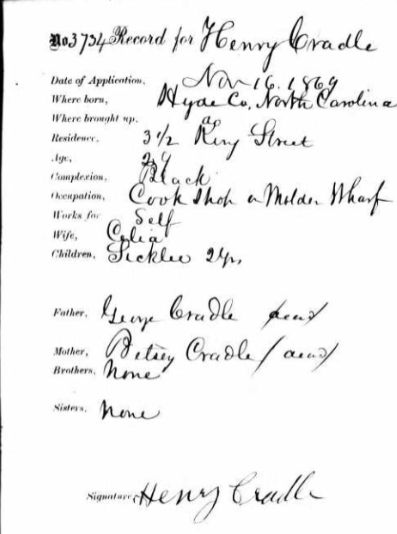 No 3734 Record for Henry Cradle
Date of Application, Nov 16. 1869
Where born, Hyde Co, North Carolina
Where brought up. "
Residence, 3 1/2 King Street
Age, 29
Complexion, Black
Occupation, Cook Shop on Wharf
Works for Self
Wife, Celia
Children, 2 yrs
Father, George Cradle (dead)
Mother, Betsey Cradle (dead)
Brothers, None
Sisters, None
Signature, Henry Cradle